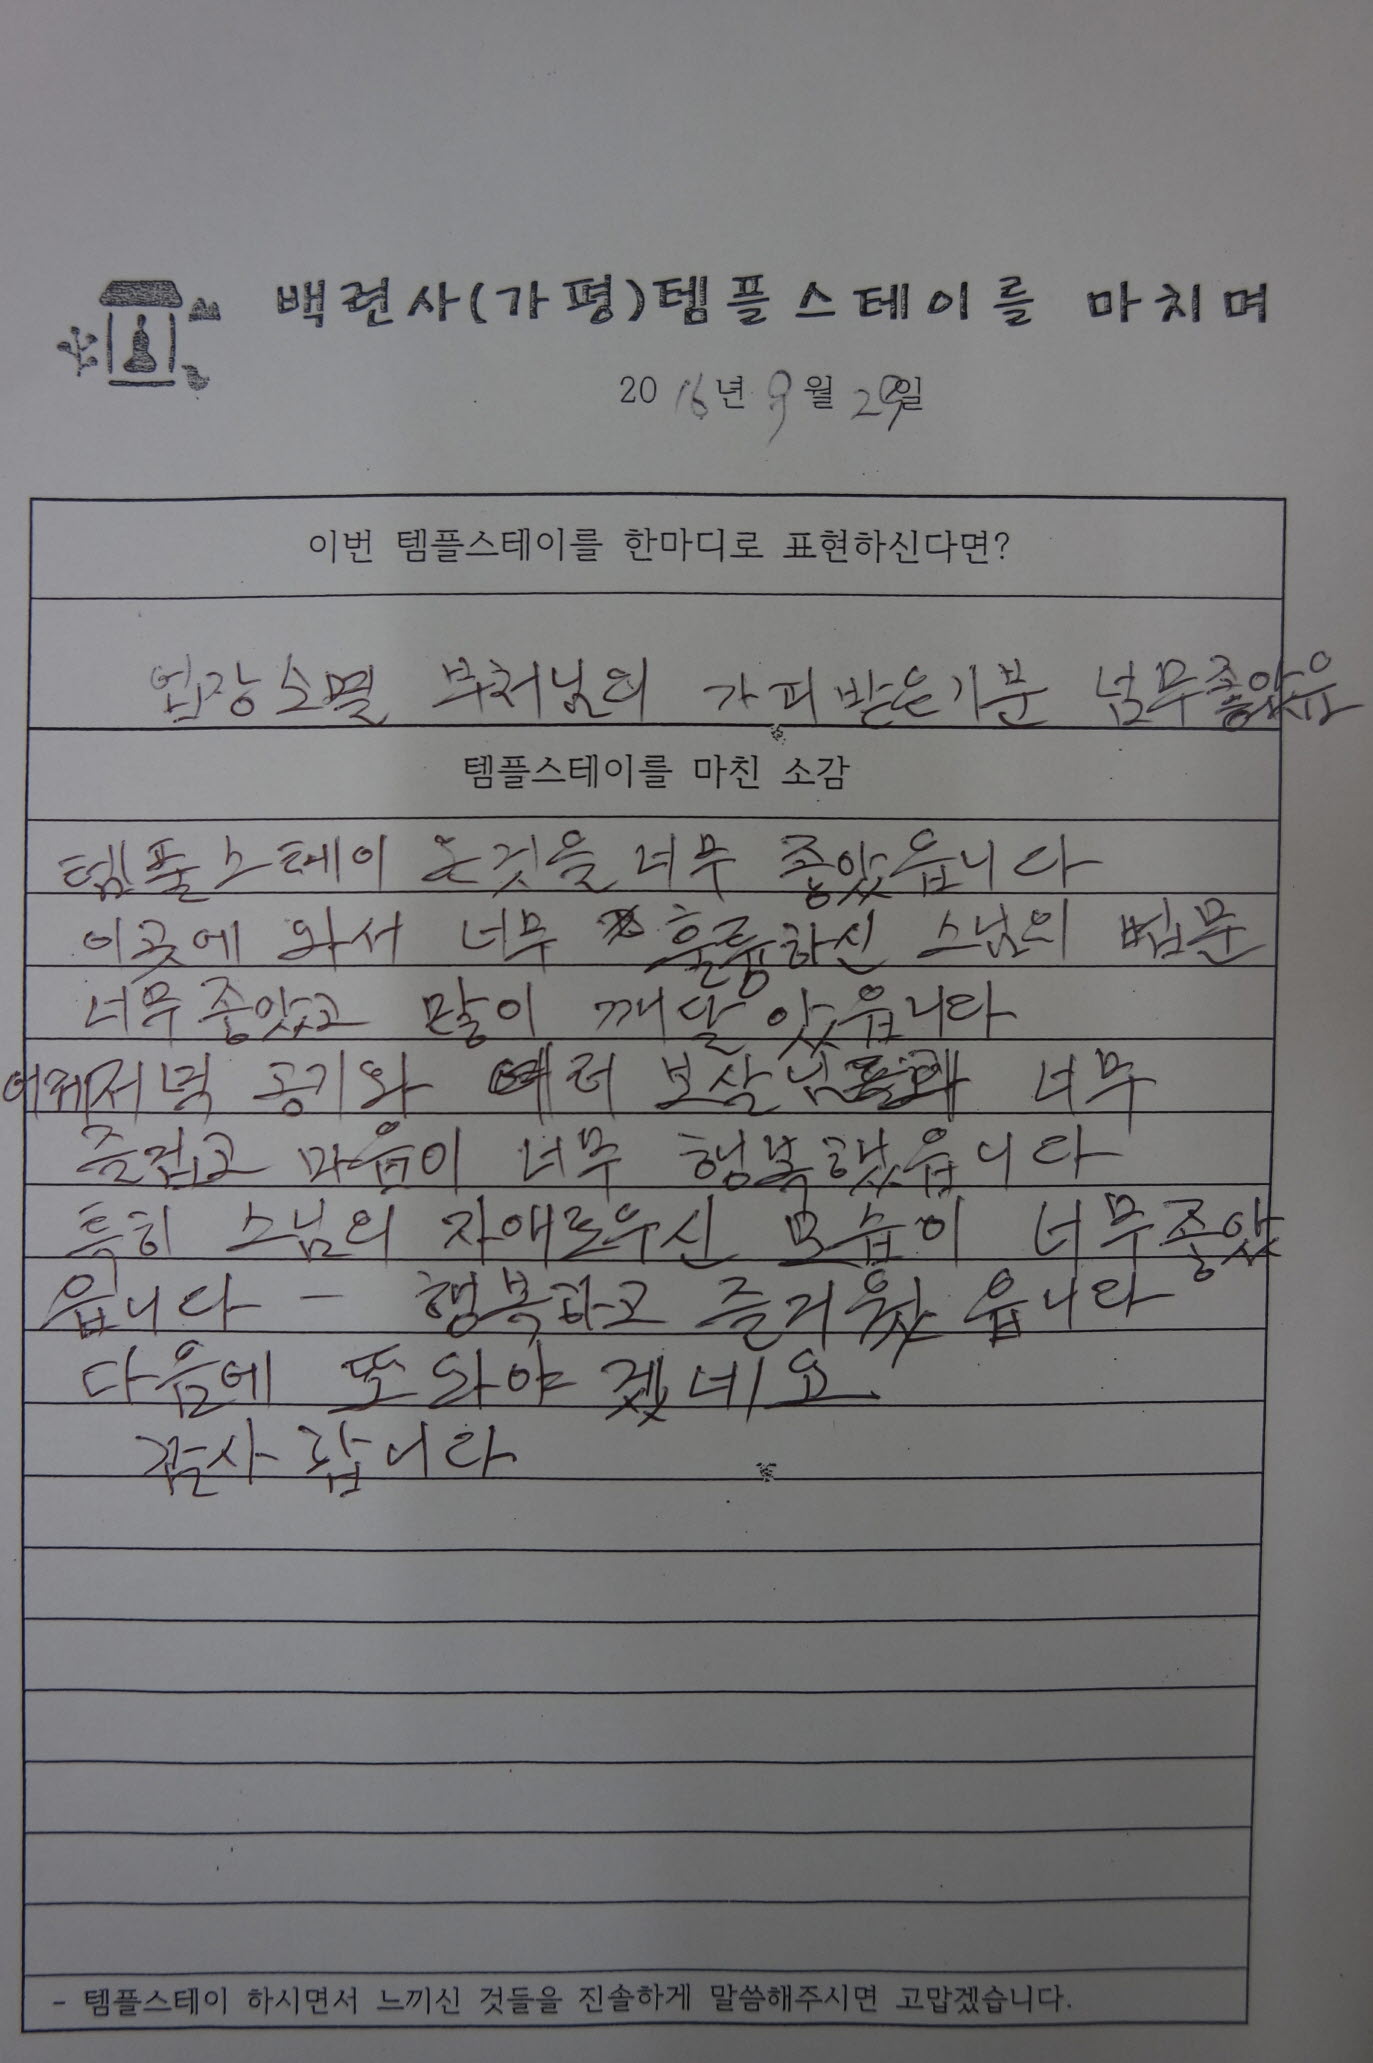 백련사(가평)템플스테이를 마치며
2016년 9월 29일
이번 템플스테이를 한마디로 표현하신다면?
업장소멸 부처님의 가피받은기분 넘무좋았유
템플스테이를 마친 소감
템풀스테이 온것을 너무 좋았읍니다
이곳에 와서 너무 훌륭하신 스님의 법문
너무좋았고 많이 깨달았읍니다
어제저녁 공기와 여러 보살님들 너무
즐겁고 마음이 너무 행복했읍니다
특히 스님의 자애로우신 모습이 너무좋았
읍니다 - 행복하고 즐거웠읍니다
다음에 또 와야 겠네요
감사합니다
- 템플스테이 하시면서 느끼신 것들을 진솔하게 말씀해주시면 고맙겠습니다.